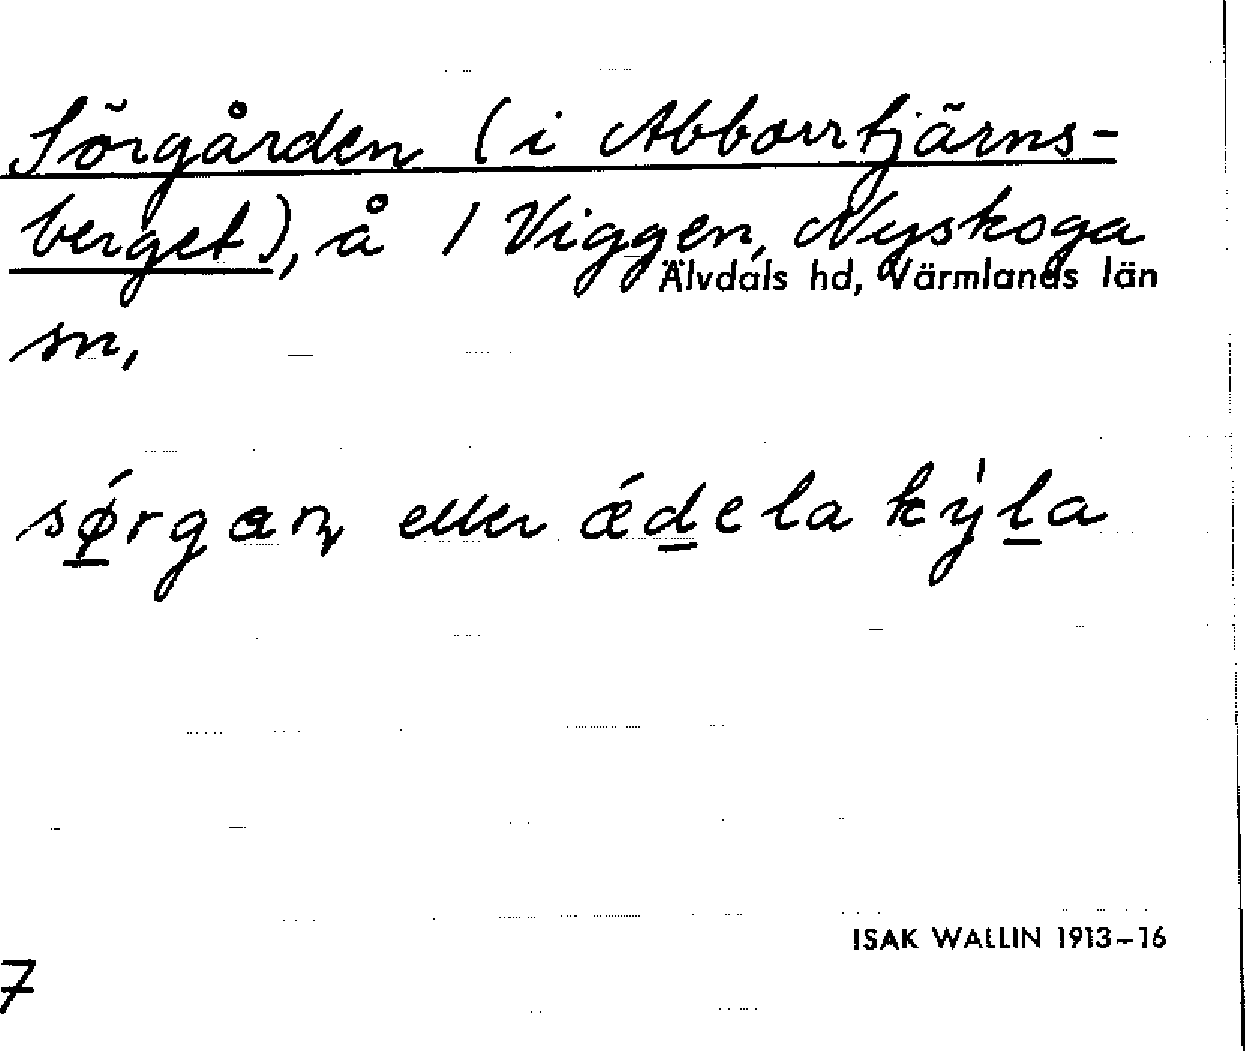 Sörgården (i Abborrtjärns-
berget), å 1 Viggen, Nyskoga
Älvdals hd, Värmlands län
sn,
sǿ̲rgaɳ eller ǽd̲ela ký̍l̲a
ISAK WALLIN 1913–16
7